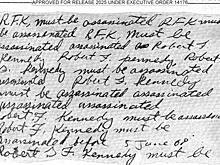 APPROVED FOR RELEASE 2025 UNDER EXECUTIVE ORDER 14176
R.F.K. must be assassinated R.F.K. must
be assassinated R.F.K. must be
assassinated assassinated Robert F.
Kennedy Robert F. Kennedy Robert
F. Kennedy must be assassinated
assassinated Robert F. Kennedy
must be assassinated assassinated
assassinated assassinated
Robert F. Kennedy must be assassinated
Robert F. Kennedy must be
assassinated before 5 June 68
Robert F. Kennedy must be